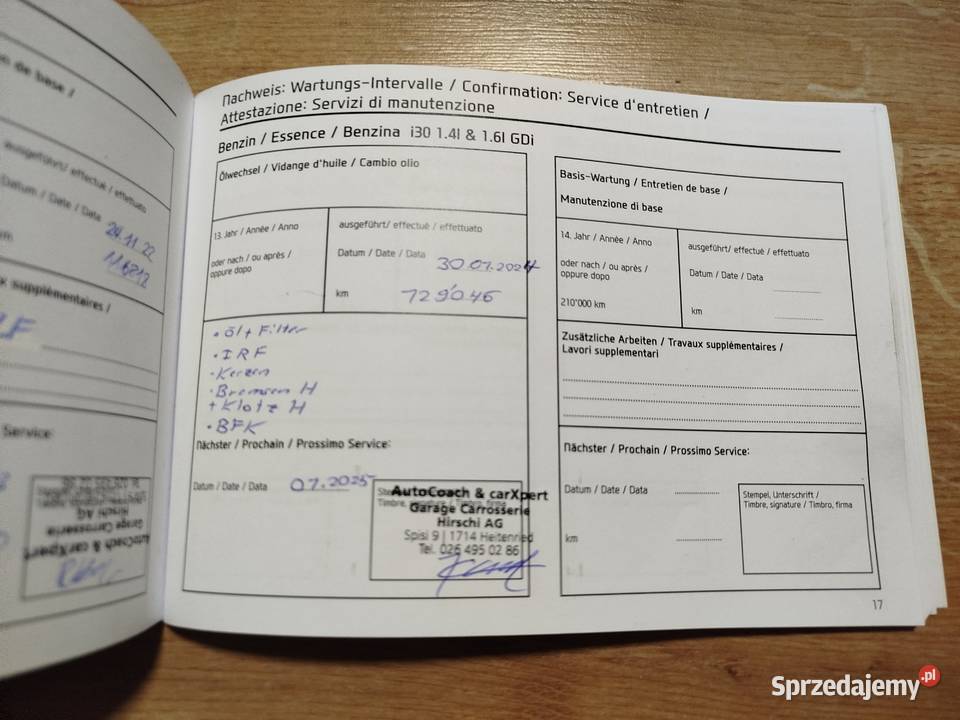 en de base /
ausgeführt/ effectué / effettuato
Datum / Date / Data
24.11.22
116212
km
supplémentaires /
Service:
Hirschi AG
Garage Carrosserie
AutoCoach & carXpert
Nachweis: Wartungs-Intervalle / Confirmation: Service d'entretien /
Attestazione: Servizi di manutenzione
Benzin / Essence / Benzina i30 1.4l & 1.6l GDi
Ölwechsel / Vidange d'huile / Cambio olio
13. Jahr / Année / Anno
oder nach / ou après /
oppure dopo
ausgeführt/ effectué / effettuato
Datum / Date / Data 30.07.2024
km 129'046
• Öl + Filter
• IRF
• Kerzen
• Bremsen H
+ Klotz H
• BFK
Nächster / Prochain / Prossimo Service:
Datum / Date / Data 07.2025
Stempel, Unterschrift /
Timbre, signature / Timbro, firma
AutoCoach & carXpert
Garage Carrosserie
Hirschi AG
Spisi 9 | 1714 Heitenried
Tel. 026 495 02 86
Basis-Wartung / Entretien de base /
Manutenzione di base
14. Jahr / Année / Anno
oder nach / ou après /
oppure dopo
210'000 km
ausgeführt/ effectué / effettuato
Datum / Date / Data
km
Zusätzliche Arbeiten / Travaux supplémentaires /
Lavori supplementari
Nächster / Prochain / Prossimo Service:
Datum / Date / Data
km
Stempel, Unterschrift /
Timbre, signature / Timbro, firma
17
Sprzedajemy.pl